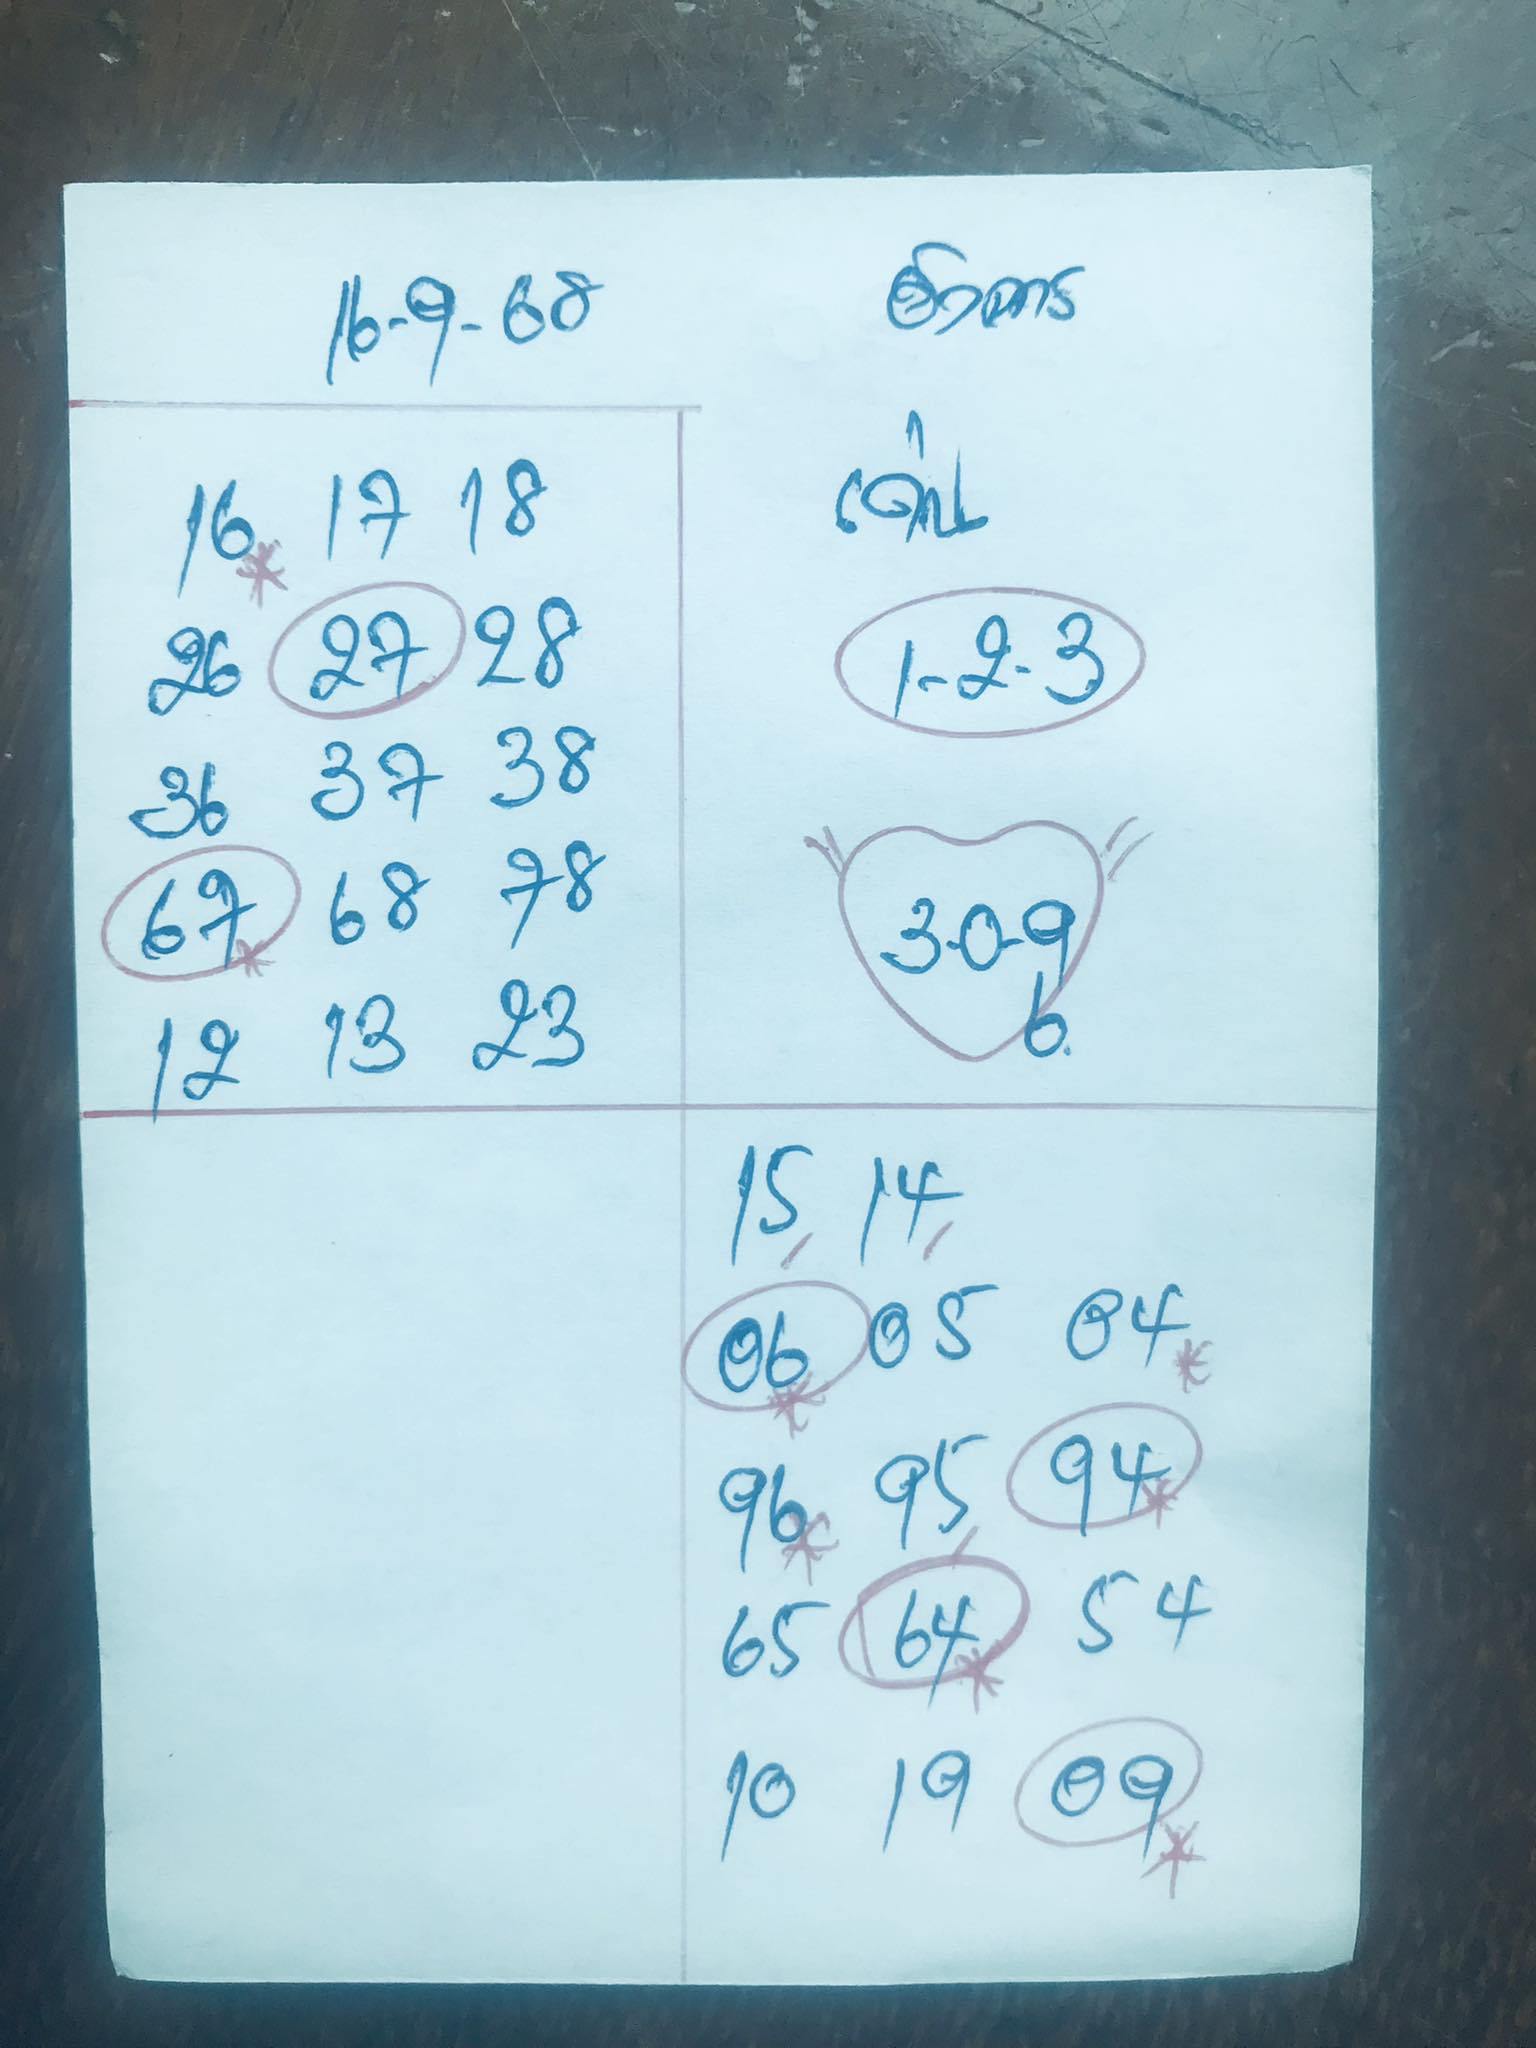 16-9-68
อังคาร
16 17 18
26 27 28
36 37 38
67 68 78
12 13 23
เด่น
1-2-3
3-0-9
6.
15 14
06 05 04
96 95 94
65 64 54
10 19 09